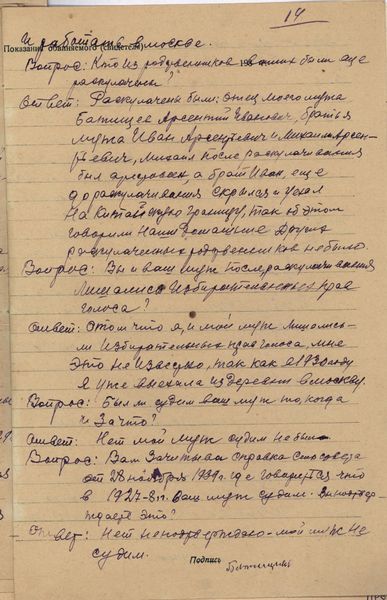 14
и работать в москве.
Показания обвиняемого (свидетеля)
Вопрос: Кто из родственников ваших был еще
раскулачены?
Ответ: Раскулачены были: отец моего мужа
Арсентий Иванович, братья
мужа Иван Арсентьевич и Михаил Арсен-
тьевич, Михаил после раскулачивания
был арестован, а брат Иван, еще
до раскулачивания скрылся и уехал
на Китайскую границу, так об этом
говорили наши домашние других
раскулаченных родственников не было.
Вопрос: Вы и ваш муж после раскулачивания
лишались избирательных прав
голоса?
Ответ: О том что я, и мой муж лишались-
ли избирательных прав голоса, мне
это не известно, так как в 1930 году
я уже выехала из деревни в москву.
Вопрос: Был ли судим ваш муж то, когда
и за что?
Ответ: Нет мой муж судим не был.
Вопрос: Вам зачитываю справка сельсовета
от 28 ноября 1939 г. где говорится что
в 1927-8 г. ваш муж судим. Вы подтвер-
ждаете это?
Ответ: Нет не подтверждаю - мой муж не
судим.
Подпись